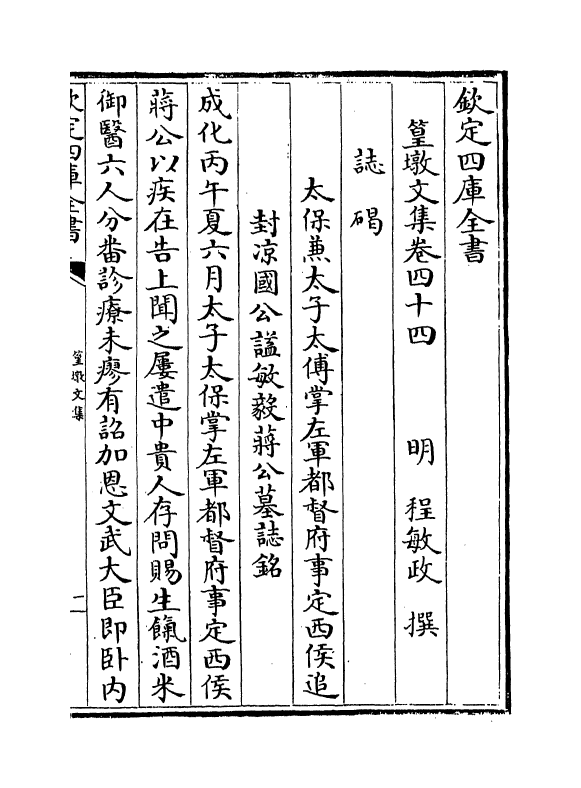 欽定四庫全書
篁墩文集卷四十四　明　程敏政　撰
誌碣
太保兼太子太傅掌左軍都督府事定西侯追
封凉國公諡敏毅蔣公墓誌銘
成化丙午夏六月太子太保掌左軍都督府事定西侯
蔣公以疾在告上聞之屢遣中貴人存問賜生餼酒米
御醫六人分畨診療未瘳有詔加恩文武大臣即卧内
欽定四庫全書
篁墩文集